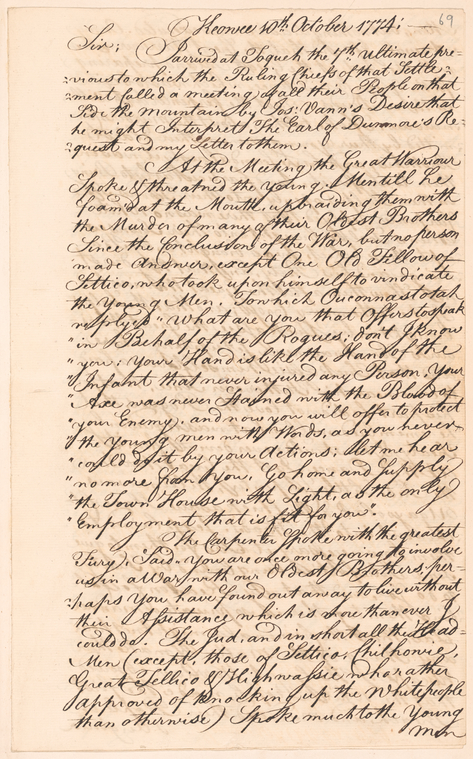 69
Keowee 10th. October 1774; —
Sir;
I arrived at Toqueh the 7th. ultimate pre-
:vious to which the Ruling Chiefs of that Settle-
:ment called a meeting of all their People on that
Side the Mountains, by Jos: Vann's Desire that
he might Interpret The Earl of Dunmore's Re-
:quest and my Letter to them.
At the Meeting the Great Warriour
Spoke & threatned the Young Men till he
foamd at the Mouth, upbraiding them with
the Murder of many of their Oldest Brothers
Since the Conclusion of the War, but no person
made Answer, except One Old Fellow of
Settico, who took upon himself to vindicate
the Young Men. To which Ouconnastotah
reply'd "What are you that Offers to speak
"in Behalf of the Rogues; don't I know
"you; your Hand is like the Hand of the
"Infant that never injured any Person, Your
"Axe was never Stained with the Blood of
"your Enemy, and now you will offer to protect
"the Young men with Words, as you never
"could do it by your Actions; let me hear
"no more from You, Go home and Supply
"the Town House with Light, as the only
"Employment that is fit for you".
The Carpenter Spoke with the greatest
Fury; Said, "You are once more going to involve
us in a War with our Oldest Brothers, per-
:haps You have found out a way to live without
their Assistance which is more than ever I
could do. The Jud, and in short all the Head-
Men (except, those of Settico, Chilhowie,
Great Tellico & Highwassie who rather
approved of knocking up the White people
than otherwise) Spoke much to the Young
Men